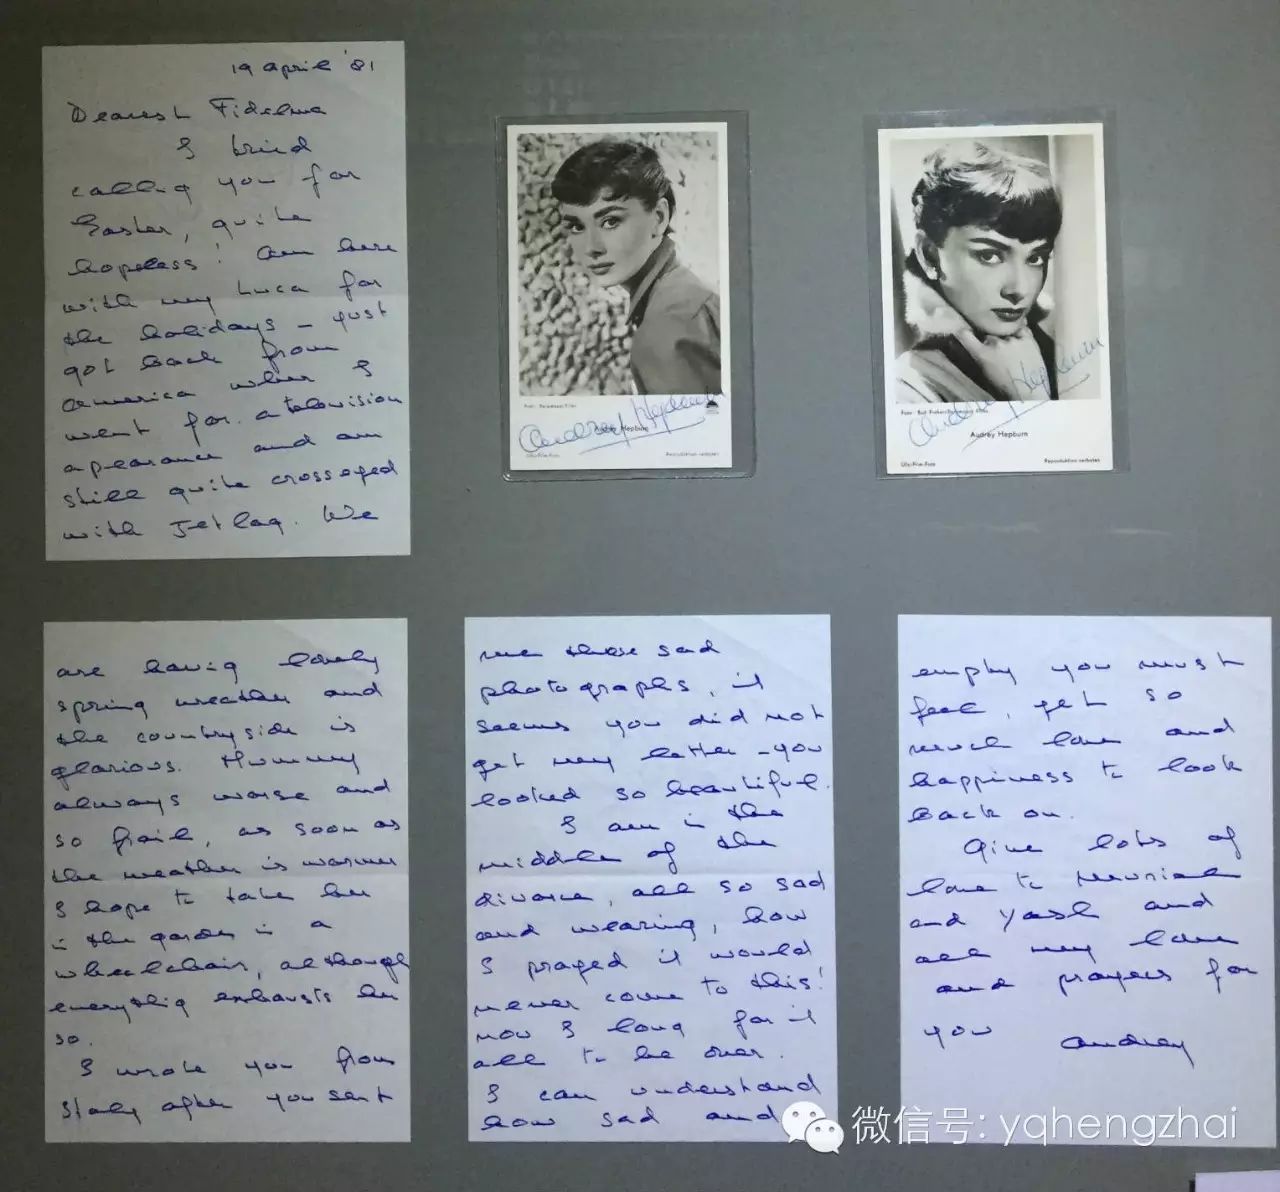 19 april '81
Dearest Fidelma
I tried
calling you for
Easter, quite
hopeless! Am here
with my Luca for
the holidays - just
got back from
America where I
went for a television
apearance and am
still quite crosseyed
with Jetlag. We
Foto: Paramount Film
Audrey Hepburn
Audrey Hepburn
Ufa/Film-Foto
Reproduktion verboten
Foto: Bud Fraker/Paramount Film
Audrey Hepburn
Audrey Hepburn
Ufa/Film-Foto
Reproduktion verboten
are having lovely
spring weather and
the countryside is
glorious. Mummy
always worse and
so frail, as soon as
the weather is warmer
I hope to take her
in the garden in a
wheelchair, although
everything exhausts her
so.
I wrote you from
Italy after you sent
me those sad
photographs, it
seems you did not
get my letter - you
looked so beautiful.
I am in the
middle of the
divorce, all so sad
and wearing, how
I prayed it would
never come to this!
now I long for it
all to be over.
I can understand
how sad and
empty you must
feel, yet so
much love and
happiness to look
back on.
Give lots of
love to
and Yash and
all my love
and prayers for
you Audrey
微信号: yqhengzhai